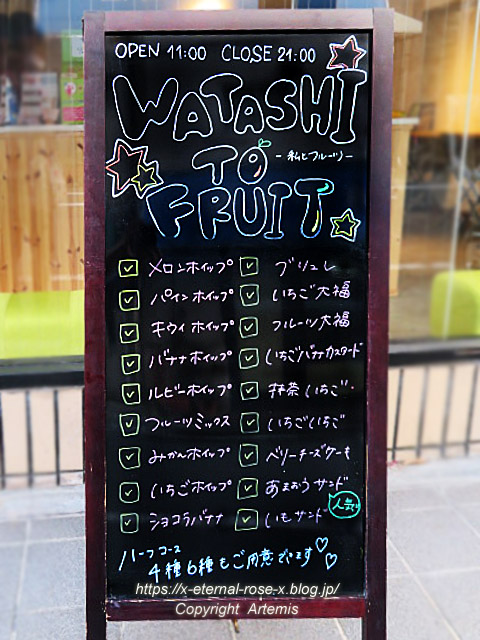 OPEN 11:00 CLOSE 21:00
WATASHI
TO
- 私とフルーツ -
FRUIT
メロンホイップ
パインホイップ
キウイホイップ
バナナホイップ
ルビーホイップ
フルーツミックス
みかんホイップ
いちごホイップ
ショコラバナナ
ブリュレ
いちご大福
フルーツ大福
いちごバナナカスタード
抹茶いちご
いちごいちご
ベリーチーズケーキ
あまおうサンド
いもサンド
人気
ハーフコース
4種6種もご用意できます
https://x-eternal-rose-x.blog.jp/
Copyright Artemis